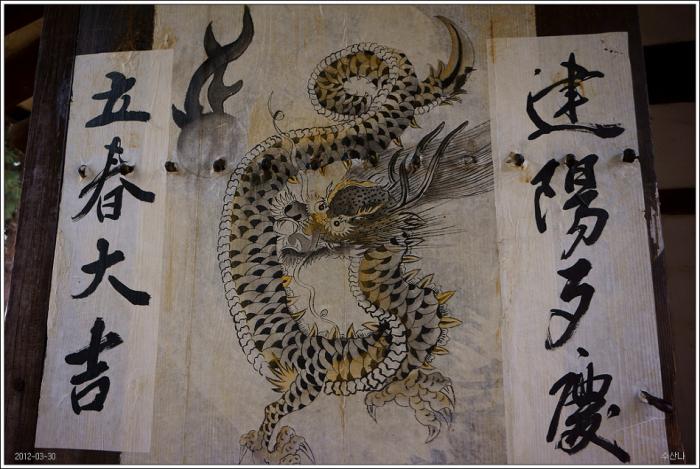 立春大吉
建陽多慶
2012-03-30
수산나